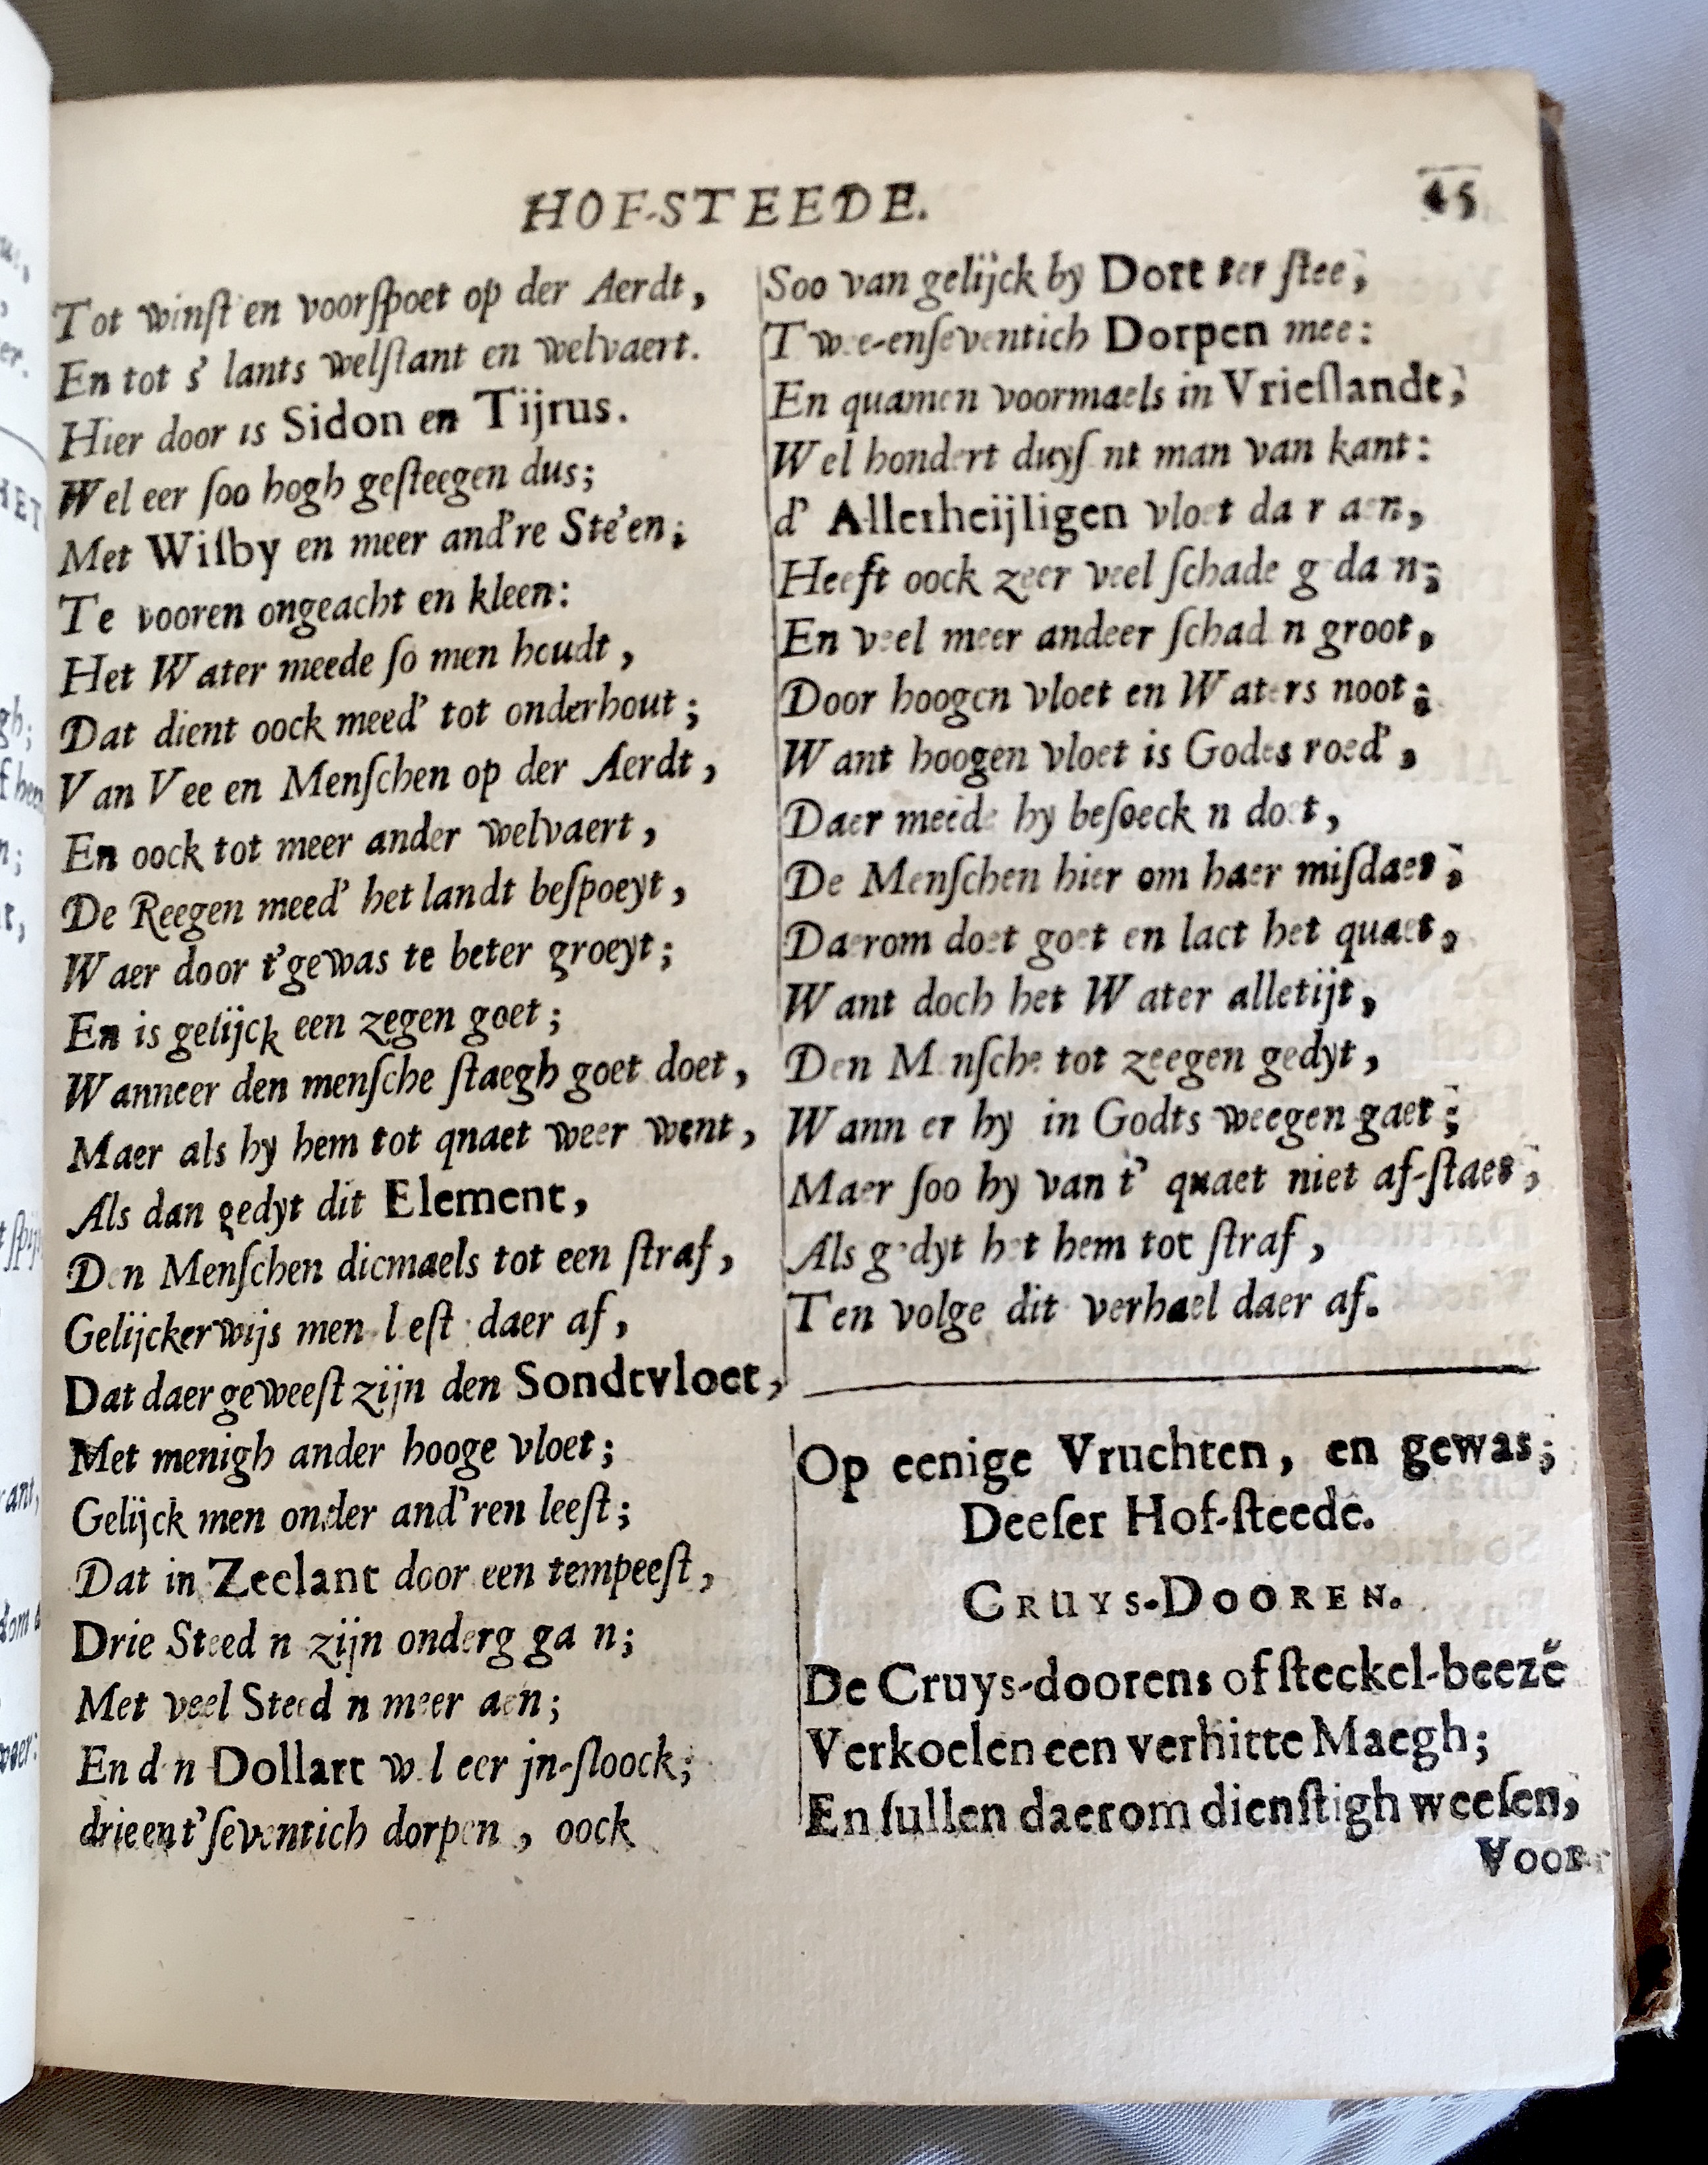 HOF-STEEDE.
45
Tot winſt en voorſpoet op der Aerdt,
En tot s' lants welſtant en welvaert.
Hier door is Sidon en Tijrus.
Wel eer ſoo hogh geſteegen dus;
Met Wiſby en meer and're Ste'en;
Te vooren ongeacht en kleen:
Het Water meede ſo men houdt,
Dat dient oock meed' tot onderhout;
Van Vee en Menſchen op der Aerdt,
En oock tot meer ander welvaert,
De Reegen meed' het landt beſpoeyt,
Waer door t'gewas te beter groeyt;
En is gelijck een zegen goet;
Wanneer den menſche ſtaegh goet doet,
Maer als hy hem tot qnaet weer went,
Als dan gedyt dit Element,
Den Menſchen dicmaels tot een ſtraf,
Gelijckerwijs men leeſt daer af,
Dat daer geweeſt zijn den Sondtvloet,
Met menigh ander hooge vloet;
Gelijck men onder and'ren leeſt;
Dat in Zeelant door een tempeeſt,
Drie Steeden zijn onderg gaen;
Met veel Steeden meer aen;
En den Dollart wel eer jn-ſloock;
drieent'ſeventich dorpen, oock
Soo van gelijck by Dort ter ſtee;
Twee-enſeventich Dorpen mee:
En quamen voormaels in Vrieſlandt;
Wel hondert duyſent man van kant:
d' Allerheijligen vloet daer aen,
Heeft oock zeer veel ſchade gedaen;
En veel meer andeer ſchaden groot,
Door hoogen vloet en Waters noot;
Want hoogen vloet is Godes roed',
Daer meede hy beſoecken doet,
De Menſchen hier om haer miſdaet;
Daerom doet goet en laet het quaet,
Want doch het Water alletijt,
Den Menſche tot zeegen gedyt,
Wanneer hy in Godts weegen gaet;
Maer ſoo hy van t' quaet niet af-ſtaet;
Als gedyt het hem tot ſtraf,
Ten volge dit verhael daer af.
Op eenige Vruchten, en gewas;
Deeſer Hof-ſteede.
CRUYS-DOOREN.
De Cruys-doorens of ſteckel-beezē
Verkoelen een verhitte Maegh;
En ſullen daerom dienſtigh weeſen,
Voor